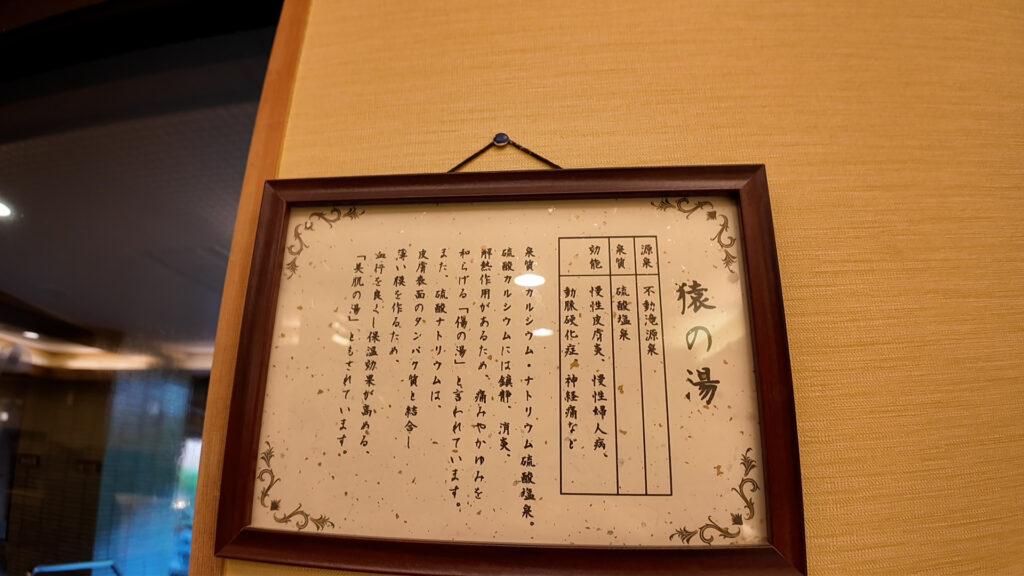 猿の湯
源泉 不動滝源泉
泉質 硫酸塩泉
効能 慢性皮膚炎、慢性婦人病、
動脈硬化症、神経痛など
泉質 カルシウム・ナトリウム硫酸塩泉。
硫酸カルシウムには鎮静、消炎、
解熱作用があるため、痛みやかゆみを
和らげる「傷の湯」と言われています。
また、硫酸ナトリウムは、
皮膚表面のタンパク質と結合し
薄い膜を作るため、
血行を良くし保温効果が高める、
「美肌の湯」ともされています。